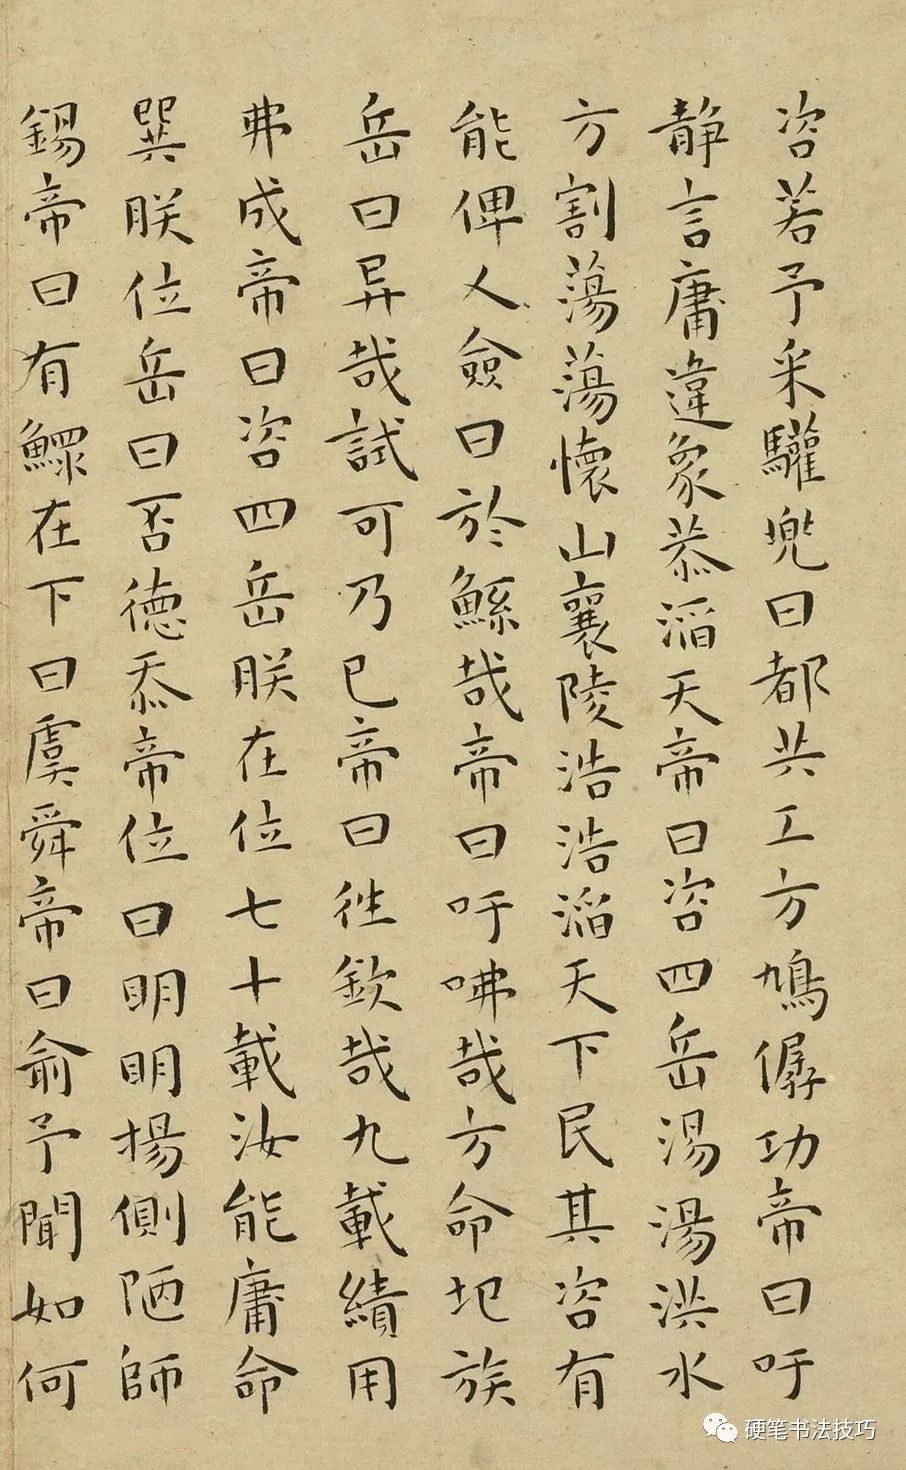 咨若予采驩兜曰都共工方鳩僝功帝曰吁
静言庸違象恭滔天帝曰咨四岳湯湯洪水
方割蕩蕩懷山襄陵浩浩滔天下民其咨有
能俾人僉曰於鯀哉帝曰吁咈哉方命圮族
岳曰异哉試可乃已帝曰往欽哉九載績用
弗成帝曰咨四岳朕在位七十載汝能庸命
巽朕位岳曰否德忝帝位曰明明揚側陋師
錫帝曰有鰥在下曰虞舜帝曰俞予聞如何
硬笔书法技巧